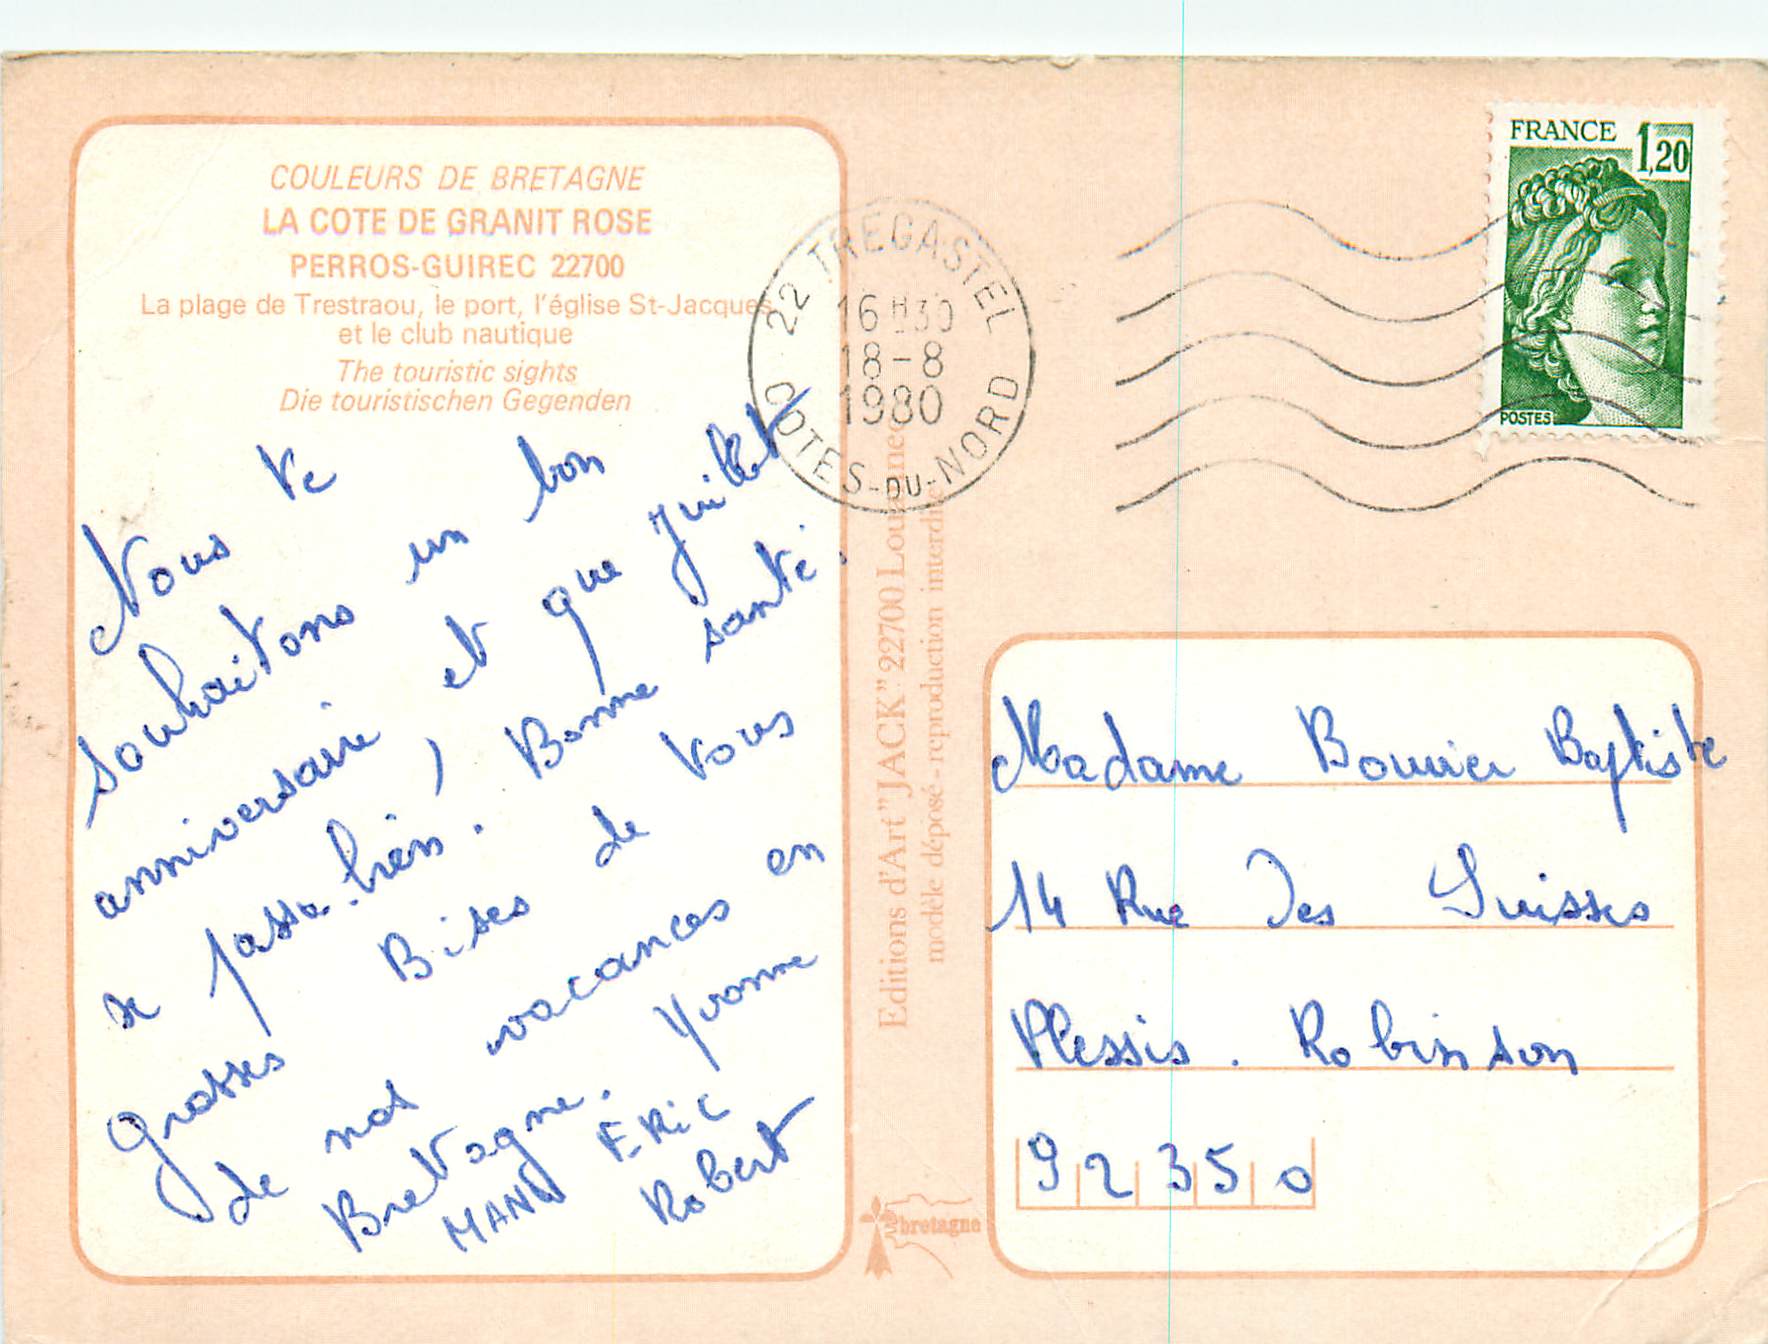 COULEURS DE BRETAGNE
LA COTE DE GRANIT ROSE
PERROS-GUIREC 22700
La plage de Trestraou, le port, l'église St-Jacques
et le club nautique
The touristic sights
Die touristischen Gegenden
Nous te
souhaitons un bon
anniversaire et que juillet
se passe bien. Bonne santé.
grosses Bises de vous
de nos vacances en
Bretagne. Yvonne
MANU ERIC
Robert
Editions d'Art "JACK" 22700
modèle déposé - reproduction interdite
22 TREGASTEL
16H30
18-8
1980
COTES-DU-NORD
FRANCE 1,20
POSTES
Madame Bouvier Baptiste
14 Rue Des Suisses
Plessis. Robinson
92350
bretagne